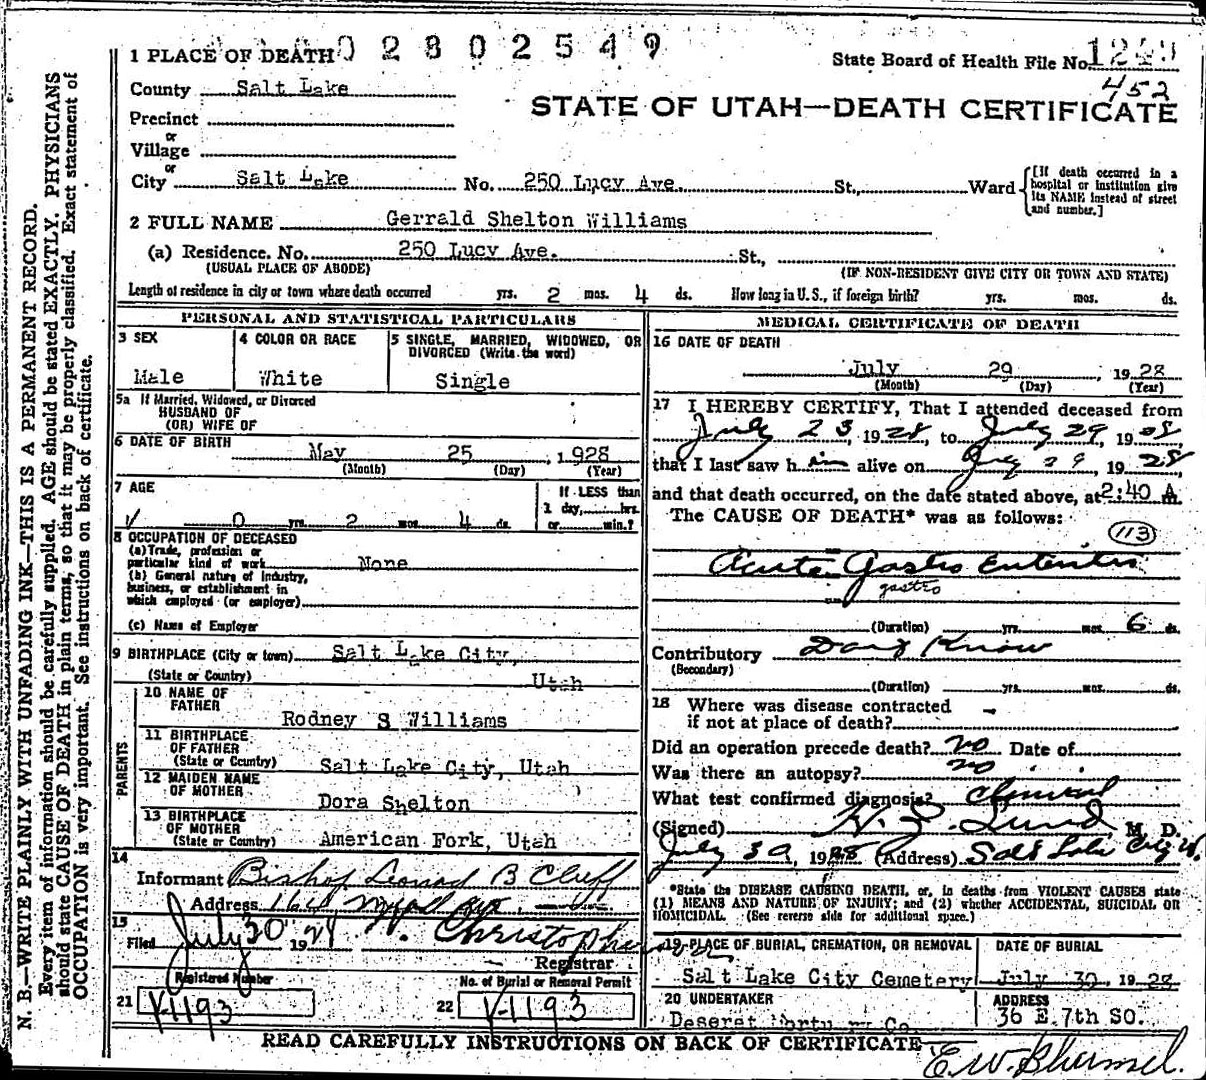 1 PLACE OF DEATH 02802549
State Board of Health File No. 12
452
County Salt Lake
STATE OF UTAH—DEATH CERTIFICATE
Precinct
or
Village
or
City Salt Lake No. 250 Lucy Ave. St., Ward
[If death occurred in a hospital or institution give its NAME instead of street and number.]
2 FULL NAME Gerrald Shelton Williams
(a) Residence. No. 250 Lucy Ave. St.,
(USUAL PLACE OF ABODE) (IF NON-RESIDENT GIVE CITY OR TOWN AND STATE)
Length of residence in city or town where death occurred yrs. 2 mos. 4 ds. How long in U. S., if foreign birth? yrs. mos. ds.
PERSONAL AND STATISTICAL PARTICULARS
3 SEX
Male
4 COLOR OR RACE
White
5 SINGLE, MARRIED, WIDOWED, OR
DIVORCED (Write the word)
Single
5a If Married, Widowed, or Divorced
HUSBAND OF
(OR) WIFE OF
6 DATE OF BIRTH
May 25, 1928
(Month) (Day) (Year)
7 AGE
0 yrs. 2 mos. 4 ds.
If LESS than
1 day, hrs.
or min.?
8 OCCUPATION OF DECEASED
(a) Trade, profession or
particular kind of work None
(b) General nature of industry,
business, or establishment in
which employed (or employer)
(c) Name of Employer
9 BIRTHPLACE (City or town) Salt Lake City,
(State or Country) Utah
PARENTS
10 NAME OF
FATHER
Rodney S Williams
11 BIRTHPLACE
OF FATHER
(State or Country) Salt Lake City, Utah
12 MAIDEN NAME
OF MOTHER
Dora Shelton
13 BIRTHPLACE
OF MOTHER
(State or Country) American Fork, Utah
14
Informant Bishop Leonard B Cluff
Address
15
Filed July 30 192 Christopherson
Registrar
Registered Number
21 V-1193
No. of Burial or Removal Permit
22 V-1193
MEDICAL CERTIFICATE OF DEATH
16 DATE OF DEATH
July 29, 1928
(Month) (Day) (Year)
17 I HEREBY CERTIFY, That I attended deceased from
July 23, 1928, to July 29, 1928,
that I last saw him alive on July 29 1928
and that death occurred, on the date stated above, at 2:40 A m.
The CAUSE OF DEATH* was as follows:
113
Acute Gastro Enteritis
gastro
(Duration) yrs. mos. 6 ds.
Contributory Dont Know
(Secondary)
(Duration) yrs. mos. ds.
18 Where was disease contracted
if not at place of death? -
Did an operation precede death? no Date of
Was there an autopsy? no
What test confirmed diagnosis? Clinical
(Signed) Lund M. D.
July 30, 1928 (Address) Salt Lake City U.
*State the DISEASE CAUSING DEATH, or, in deaths from VIOLENT CAUSES state
(1) MEANS AND NATURE OF INJURY; and (2) whether ACCIDENTAL, SUICIDAL OR
HOMICIDAL. (See reverse side for additional space.)
19 PLACE OF BURIAL, CREMATION, OR REMOVAL
Salt Lake City Cemetery
DATE OF BURIAL
July 30, 1928
20 UNDERTAKER
Deseret Mortuary Co.
ADDRESS
36 E. 7th SO.
READ CAREFULLY INSTRUCTIONS ON BACK OF CERTIFICATE
E.W.
N. B.—WRITE PLAINLY WITH UNFADING INK—THIS IS A PERMANENT RECORD.
Every item of information should be carefully supplied. AGE should be stated EXACTLY. PHYSICIANS
should state CAUSE OF DEATH in plain terms, so that it may be properly classified. Exact statement of
OCCUPATION is very important. See instructions on back of certificate.